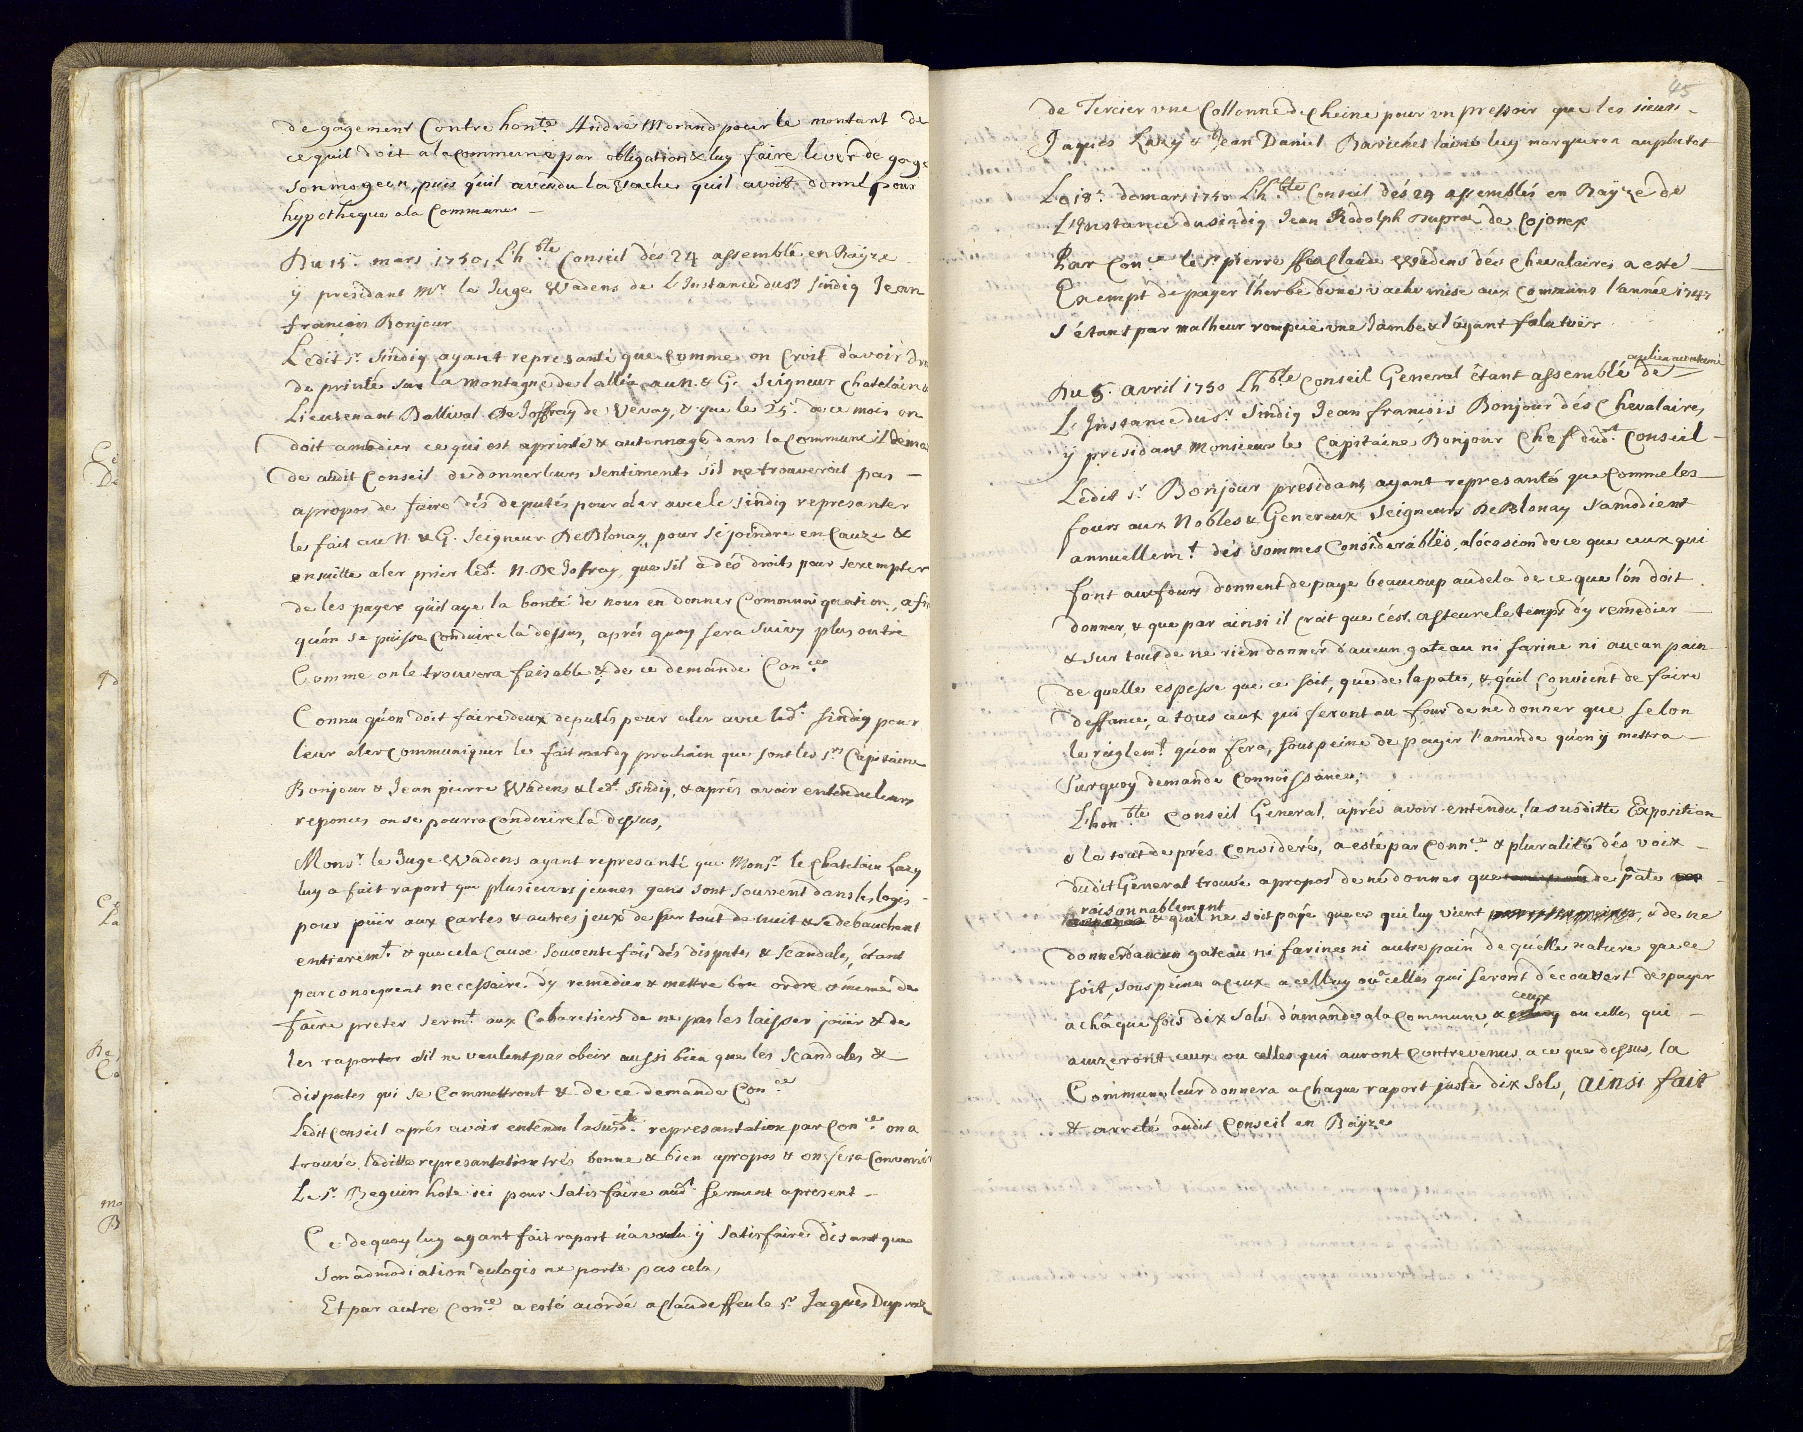 de gagement Contre hon.te André Morand pour le montant de
ce quil doit a la Commune par obligation & luy faire lever de gage
son mogeon, puis quil a vendu la vache quil avoit donné pour
hypotheque a la Commune
Du 15.e mars 1750, L'h.ble Conseil dés 24 assemblé en Bäyze
ÿ presidant Mr le Juge Wadens de L'Instance du Sr Sindiq Jean
francois Bonjour
Ledit Sr. Sindiq ayant representé que comme on Croit d'avoir
de printé sur la Montagne de lallia au N. & G. Seigneur Chatelain &
Lieutenant Ballival De Joffrey de Vevay, & que le 25.e de ce mois on
doit amodier ce qui est a printé & autonnage dans la Commune il
de audit Conseil de donner leurs sentiments s'il ne trouveroit pas
apropos de faire dés deputés pour aler avec le sindiq representer
le fait au N. & G. Seigneur De Blonay, pour se joindre en Cauze &
ensuitte aler prier led.t N. De Jofray, que s'il a dés droits pour s'exempter
de les payer qu'il aye la bonté de nous en donner Communiquation,
qu'on se puisse Conduire la dessus, aprés quoy sera suivy plus outre
Comme on le trouvera faisable & de ce demande Con.ce
Connu qu'on doit faire deux deputés pour aler avec led.t sindiq pour
leur aler Communiquer le fait mardy prochain que sont les Srs Capitaine
Bonjour & Jean pierre Wadens & led.t Sindiq, & aprés avoir entendu leurs
reponces on se pourra Conduire la dessus,
Monsr. le Juge Wadens ayant representé que Monsr. le Chatelain
luy a fait raport que plusieurs jeunes gens sont souvent dans les logis
pour jüir aux Cartes & autres jeux de sur tout de nuit & se debauchent
entierem.t & que cela Cause souvente fois dés disputes & scandales, étant
par consequent necessaire d'y remedier & mettre bon ordre & même de
faire preter serm.t aux Cabaretiers de ne pas les laisser jouïr & de
les raporter sil ne veulent pas obeir aussi bien que les scandales &
disputes qui se Commettront & de ce demande Con.ce
Ledit Conseil aprés avoir entendu la susd.te representation par Con.ce on a
trouvé laditte representation trés bonne & bien apropos & on fera Convenir
Le Sr. Beguin hote ici pour satisfaire aud.t serment apresent
Ce dequoy luy ayant fait raport n'a voulu ÿ satisfaire disant que
son admodiation du logis ne porte pas cela,
Et par autre Con.ce a esté acordé a Claude ffeu le Sr. Jaques Dupraz
45
de Tercier une Collonne de Cheine pour un pressoir que les sieurs
Jaques & Jean Daniel laisné luy marqueron au plutot
Le 18.e de mars 1750 L'h.ble Conseil dés 24 assemblés en Bäÿze de
L'Instance du sindiq Jean Rodolph dupraz de Cojonex
Par Con.ce le Sr pierre ffeu Claude Wadens dés Chevalaires a esté
Exempt de payer l'herbe d'une vache mise aux Communs l'année 1747
s'étant par malheur rompuë une Jambe & l'ayant falu tuër
au lieu acoutumé
Du 5.e avril 1750 L'h.ble Conseil General étant assemblé de
L'Instance du Sr. Sindiq Jean francois Bonjour dés Chevalaires
ÿ presidant Monsieur le Capitaine Bonjour Chef dud.t Conseil
Ledit Sr. Bonjour presidant, ayant representé que Comme les
fours aux Nobles & Genereux Seigneurs De Blonay s'amodient
annuellem.t dés sommes Considerables, a l'ocasion de ce que ceux qui
font au fours donnent de paye beaucoup audela de ce que l'on doit
donner, & que par ainsi il croit que c'est asteure le temps d'y remedier
& sur tout de ne rien donner d'aucun gateau ni farine ni aucun pain
de quelle espesse que ce soit, que de la pate, & quil Convient de faire
deffance, a tous ceux qui feront au four de ne donner que selon
le réglem.t qu'on fera, sous peine de payer l'amende qu'on ÿ mettra
Surquoy demande Connoissance,
L'hon.ble Conseil General, aprés avoir entendu, la susditte Exposition
& le tout de prés Consideré, a esté par Conn.ce & pluralité dés voix
dudit General trouvé apropos de ne donner que de pate
raisonnablement
& quil ne soit payé que ce qui luy vient, & de ne
donner d'aucun gateau ni farine ni autre pain de quelle nature que ce
soit, sous peine a ceux a celluy ou celles qui seront découvert de payer
a châque fois dix sols d'amande a la Commune, &
ceux
ou celles qui
auzeront ceux ou celles qui auront Contrevenus a ce que dessus, la
Commune leur donnera a chaque raport juste dix sols, ainsi fait
& arreté audit Conseil en Bäyze